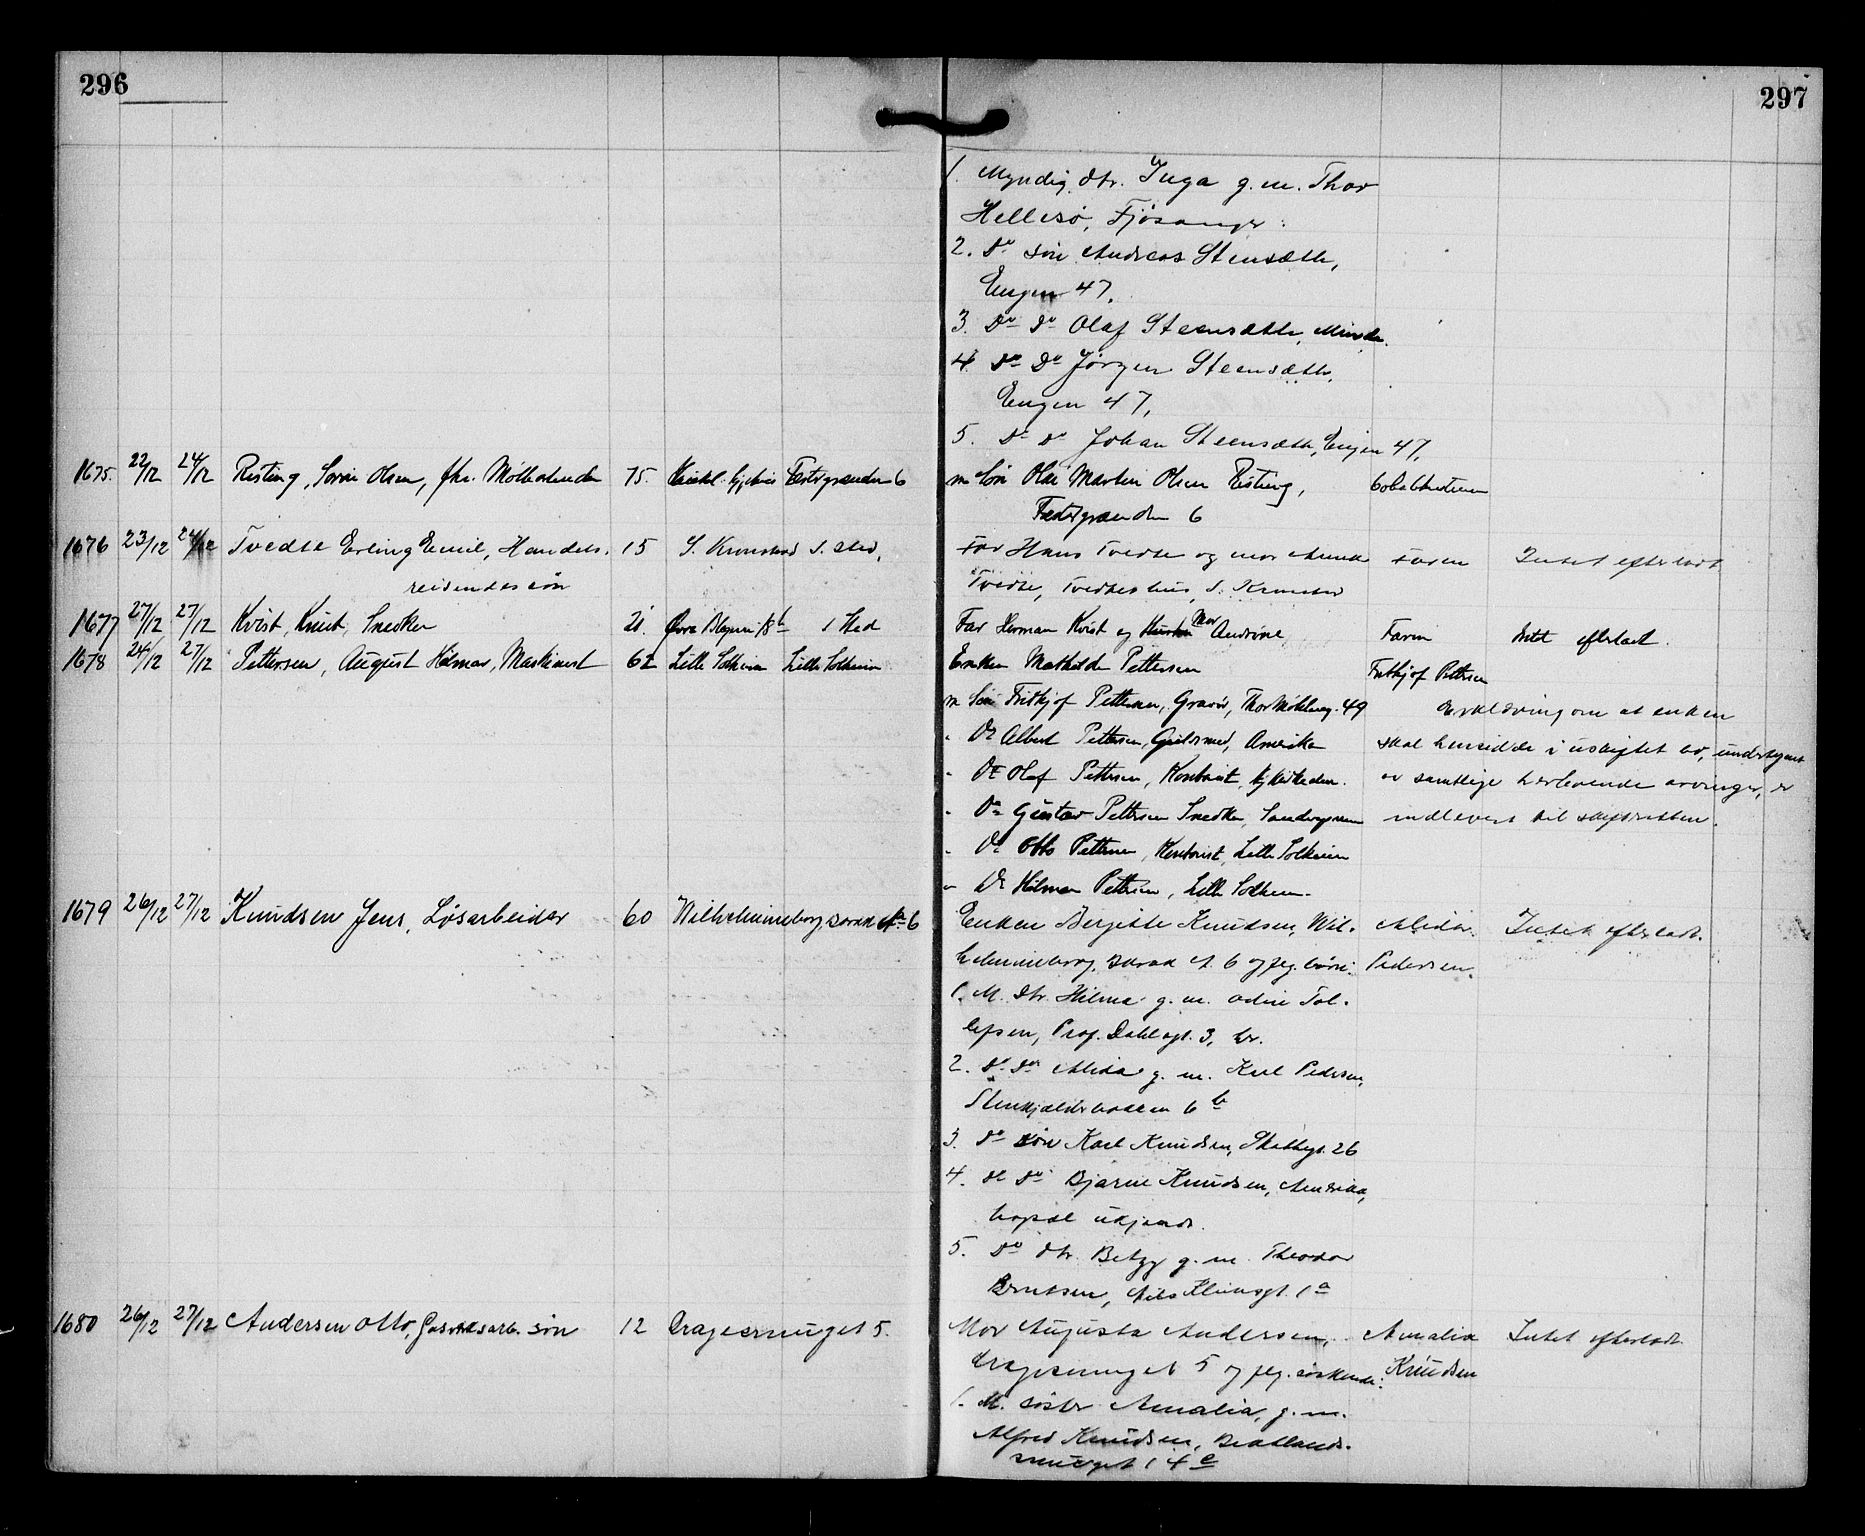 296
297
1. Myndig dtr. Inga g.m. Thor
Hellesö, Fjösanger:
2. Do sön Andreas Stensæth,
Engen 47.
3. Do Do Olaf Steensæth, Minde.
4. Do Do Jörgen Steensæth,
Engen 47,
5. Do Do Johan Steensæth, Engen 47,
1675. 22/12 24/12 Risting, Sören Olsen, fhv. Mölleslender 75. 6 m Sön Olai Martin Olsen Risting,
6
1676 23/12 24/12 Tvedte Erling Emil, Handels- 15 S. Kronstad S. sted, Far Hans Tvedte og mor Anna Faren Intet efterladt
reisendes sön Tvedte, Tvedtes hus, S. Kronstad
1677 27/12 27/12 Kvist, Knut, Snedker 21. Övre Blegevei 18b S Sted Far Herman Kvist og Mor Andrine Faren Intet efterladt.
1678 24/12 27/12 Pettersen, August Hilmar, Maskinist 62 Lille Solheim Lille Solheim Enken Mathilde Pettersen Fritjof Pettersen
m Sön Fritjof Pettersen, Gravör, Thor Möhlensg. 49 Erklæring om at enken
" Do Albert Pettersen, Guldsmed, Amerika skal hensidde i uskiftet bo, undertegnet
" Do Olaf Pettersen, Kontorist, av samtlige herlevende arvinger, er
" Do Gustav Pettersen Snedker, indlevert til skifteretten.
" Do Otto Pettersen, Kontorist, Lille Solheim
" Do Hilmar Pettersen, Lille Solheim.
1679 26/12 27/12 Knudsen Jens, Lösarbeider 60 Wilhelmineborg, barak A. 6 Enken Bergitte Knudsen, Wil- Alida Intet efterladt.
helmineborg, barak A. 6 og flg. börn: Pedersen.
1. M. dtr. Hilma g.m. Odin Tol-
lefsen, Prof. Dahlsgt. 3, hr.
2. Do Do Alida g.m. Karl Pedersen,
Stenkjelderbakken 6b
3. Do sön Karl Knudsen, Skottegt. 26
4. Do Do Bjarne Knudsen, Amerika,
bopæl ukjendt.
5. Do dtr. Betzy g.m. Theodor
Berntsen, Nils Klimsgt. 1a
1680 26/12 27/12 Andersen Otto, Gasværksarb. sön 12 Dragesmuget 5. Mor Augusta Andersen, Amalia Intet efterladt
Dragesmuget 5 og flg. söskende: Knudsen
1. M. söster Amalia, g.m.
Alfred Knudsen,
smuget 14c